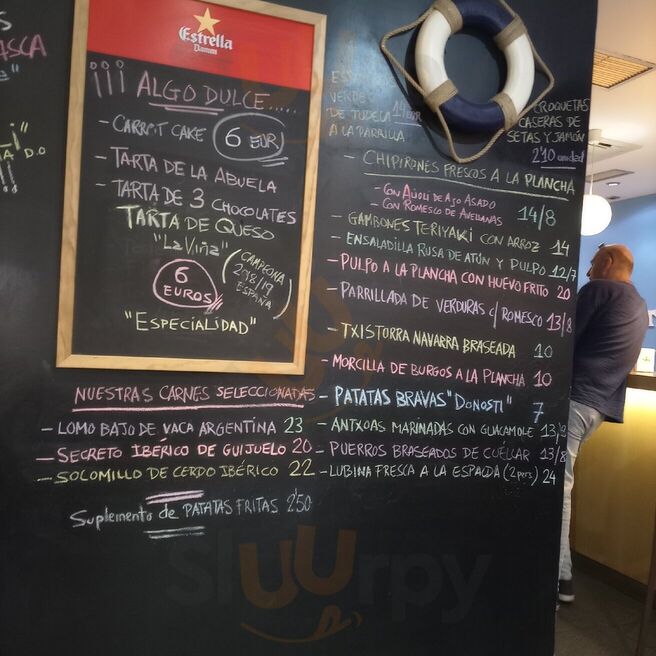 S
ASCA
D.O
Estrella
Damm
¡¡¡ ALGO DULCE.....
- CARROT CAKE 6 EUR
- TARTA DE LA ABUELA
- TARTA DE 3 CHOCOLATES
TARTA DE QUESO
"LA VIÑA"
(CAMPEONA
2018/19
ESPAÑA)
6
EUROS
"ESPECIALIDAD"
NUESTRAS CARNES SELECCIONADAS
- LOMO BAJO DE VACA ARGENTINA 23
- SECRETO IBÉRICO DE GUIJUELO 20
- SOLOMILLO DE CERDO IBÉRICO 22
Suplemento de PATATAS FRITAS 2'50
VERDES
DE TUDELA 14 EUR
A LA PARRILLA
CROQUETAS
CASERAS DE
SETAS Y JAMÓN
2'10 unidad
- CHIPIRONES FRESCOS A LA PLANCHA
- CON ALIOLI DE AJO ASADO
- CON ROMESCO DE AVELLANAS 14/8
- GAMBONES TERIYAKI CON ARROZ 14
- ENSALADILLA RUSA DE ATÚN Y PULPO 12/7
- PULPO A LA PLANCHA CON HUEVO FRITO 20
- PARRILLADA DE VERDURAS C/ ROMESCO 13/8
- TXISTORRA NAVARRA BRASEADA 10
- MORCILLA DE BURGOS A LA PLANCHA 10
- PATATAS BRAVAS "DONOSTI" 7
- ANTXOAS MARINADAS CON GUACAMOLE
- PUERROS BRASEADOS DE CUELLAR 13/8
- LUBINA FRESCA A LA ESPALDA (2 pers) 24
Sluurpy